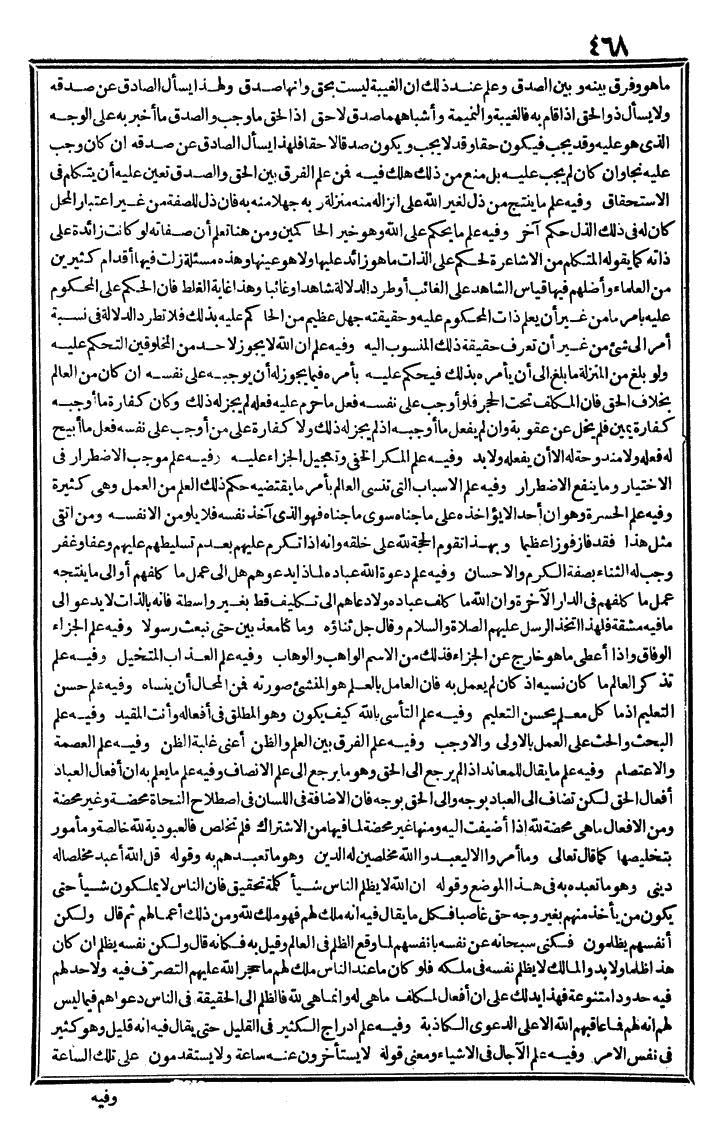 ٤٦٨
ما هو وفرق بينه وبين الصدق وعلم عند ذلك ان الغيبة ليست بحق وانها صدق ولهذا يسأل الصادق عن صدقه
ولا يسأل ذو الحق اذا قام به فالغيبة والنميمة وأشباههما صدق لا حق اذ الحق ما وجب والصدق ما أخبر به على الوجه
الذى هو عليه وقد يجب فيكون حقا وقد لا يجب ويكون صدقا لا حقا فلهذا يسأل الصادق عن صدقه ان كان وجب
عليه نجا وان كان لم يجب عليه بل منع من ذلك هلك فيه فمن علم الفرق بين الحق والصدق تعين عليه أن يتكلم فى
الاستحقاق وفيه علم ما ينتج من ذل لغير الله على انزاله منه منزلة ربه جهلا منه به فان ذل للصفة من غير اعتبار المحل
كان له فى ذلك الذل حكم آخر وفيه علم ما يحكم على الله وهو خير الحاكمين ومن هنا تعلم أن صفاته لو كانت زائدة على
ذاته كما يقوله المتكلم من الاشاعرة لحكم على الذات ما هو زائد عليها ولا هو عينها وهذه مسئلة زلت فيها أقدام كثيرين
من العلماء وأضلهم فيها قياس الشاهد على الغائب أو طرد الدلالة شاهدا وغائبا وهذا غاية الغلط فان الحكم على المحكوم
عليه بامر ما من غير أن يعلم ذات المحكوم عليه وحقيقته جهل عظيم من الحاكم عليه بذلك فلا تطرد الدلالة فى نسبة
أمر الى شئ من غير أن تعرف حقيقة ذلك المنسوب اليه وفيه علم ان الله لا يجوز لاحد من المخلوقين التحكم عليه
ولو بلغ من المنزلة ما بلغ الى أن يأمره بذلك فيحكم عليه بأمره فيما يجوز له أن يوجبه على نفسه ان كان من العالم
بخلاف الحق فان المكلف تحت الحجر فلو أوجب على نفسه فعل ما حرم عليه فعله لم يجز له ذلك وكان كفارة ما أوجبه
كفارة يمين فلم يخل عن عقوبة وان لم يفعل ما أوجبه اذ لم يجز له ذلك ولا كفارة على من أوجب على نفسه فعل ما أبيح
له فعله ولا مندوحة له الا أن يفعله ولابد وفيه علم المكر الخفى وتعجيل الجزاء عليه وفيه علم موجب الاضطرار فى
الاختيار وما ينفع الاضطرار وفيه علم الاسباب التى تنسى العالم بأمر ما يقتضيه حكم ذلك العلم من العمل وهى كثيرة
وفيه علم الحسرة وهو ان أحدا لا يؤاخذه على ما جناه سوى ما جناه فهو الذى آخذ نفسه فلا يلومن الا نفسه ومن اتقى
مثل هذا فقد فاز فوزا عظيما وبهذا تقوم الحجة لله على خلقه وانه اذا تكرم عليهم بعدم تسليطهم عليهم وعفا وغفر
وجب له الثناء بصفة الكرم والاحسان وفيه علم دعوة الله عباده لماذا يدعوهم هل الى عمل ما كلفهم أو الى ما ينتجه
عمل ما كلفهم فى الدار الآخرة وان الله ما كلف عباده ولا دعاهم الى تكليف قط بغير واسطة فانه بالذات لا يدعو الى
ما فيه مشقة فلهذا اتخذ الرسل عليهم الصلاة والسلام وقال جل ثناؤه وما كنا معذبين حتى نبعث رسولا وفيه علم الجزاء
الوفاق واذا أعطى ما هو خارج عن الجزاء فذلك من الاسم الواهب والوهاب وفيه علم العذاب المتخيل وفيه علم
تذكر العالم ما كان نسيه اذ كان لم يعمل به فان العامل بالعلم هو المنشئ صورته فمن المحال أن ينساه وفيه علم حسن
التعليم اذ ما كل معلم يحسن التعليم وفيه علم التأسى بالله كيف يكون وهو المطلق فى أفعاله وأنت المقيد وفيه علم
البحث والحث على العمل بالاولى والاوجب وفيه علم الفرق بين العلم والظن أعنى غلبة الظن وفيه علم العصمة
والاعتصام وفيه علم ما يقال للمعاند اذا لم يرجع الى الحق وهو ما يرجع الى علم الانصاف وفيه علم ما يعلم به ان أفعال العباد
أفعال الحق لكن تضاف الى العباد بوجه والى الحق بوجه فان الاضافة فى اللسان فى اصطلاح النحاة محضة وغير محضة
ومن الافعال ما هى محضة لله اذا أضيفت اليه ومنها غير محضة لما فيها من الاشتراك فلم تخلص فالعبودية لله خالصة ومأمور
بتخليصها كما قال تعالى وما أمروا الا ليعبدوا الله مخلصين له الدين وهو ما تعبدهم به وقوله قل الله أعبد مخلصا له
دينى وهو ما تعبده به فى هذا الموضع وقوله ان الله لا يظلم الناس شيأ كلمة تحقيق فان الناس لا يملكون شيأ حتى
يكون من يأخذ منهم بغير وجه حق غاصبا فكل ما يقال فيه انه ملك لهم فهو ملك لله ومن ذلك أعمالهم ثم قال ولكن
أنفسهم يظلمون فكنى سبحانه عن نفسه بانفسهم لما وقع الظلم فى العالم وقيل به فكانه قال ولكن نفسه يظلم ان كان
هذا ظلما ولابد والمالك لا يظلم نفسه فى ملكه فلو كان ما عند الناس ملك لهم ما حجر الله عليهم التصرف فيه ولا حد لهم
فيه حدودا متنوعة فهذا يدلك على ان أفعال المكلف ما هى له وانما هى لله فالظلم الى الحقيقة فى الناس دعواهم فيما ليس
لهم انه لهم فما عاقبهم الله الا على الدعوى الكاذبة وفيه علم ادراج الكثير فى القليل حتى يقال فيه انه قليل وهو كثير
فى نفس الامر وفيه علم الآجال فى الاشياء ومعنى قولة لا يستأخرون عنه ساعة ولا يستقدمون على تلك الساعة
وفيه